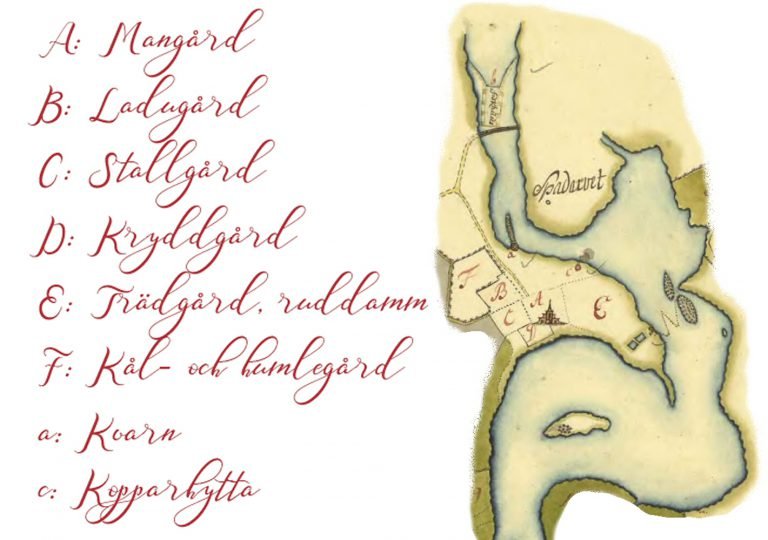 A: Mangård
B: Ladugård
C: Stallgård
D: Kryddgård
E: Trädgård, ruddamm
F: Kål- och humlegård
a: Kvarn
c: Kopparhytta
Spadarvet
a
c
F
B
A
E
C
D